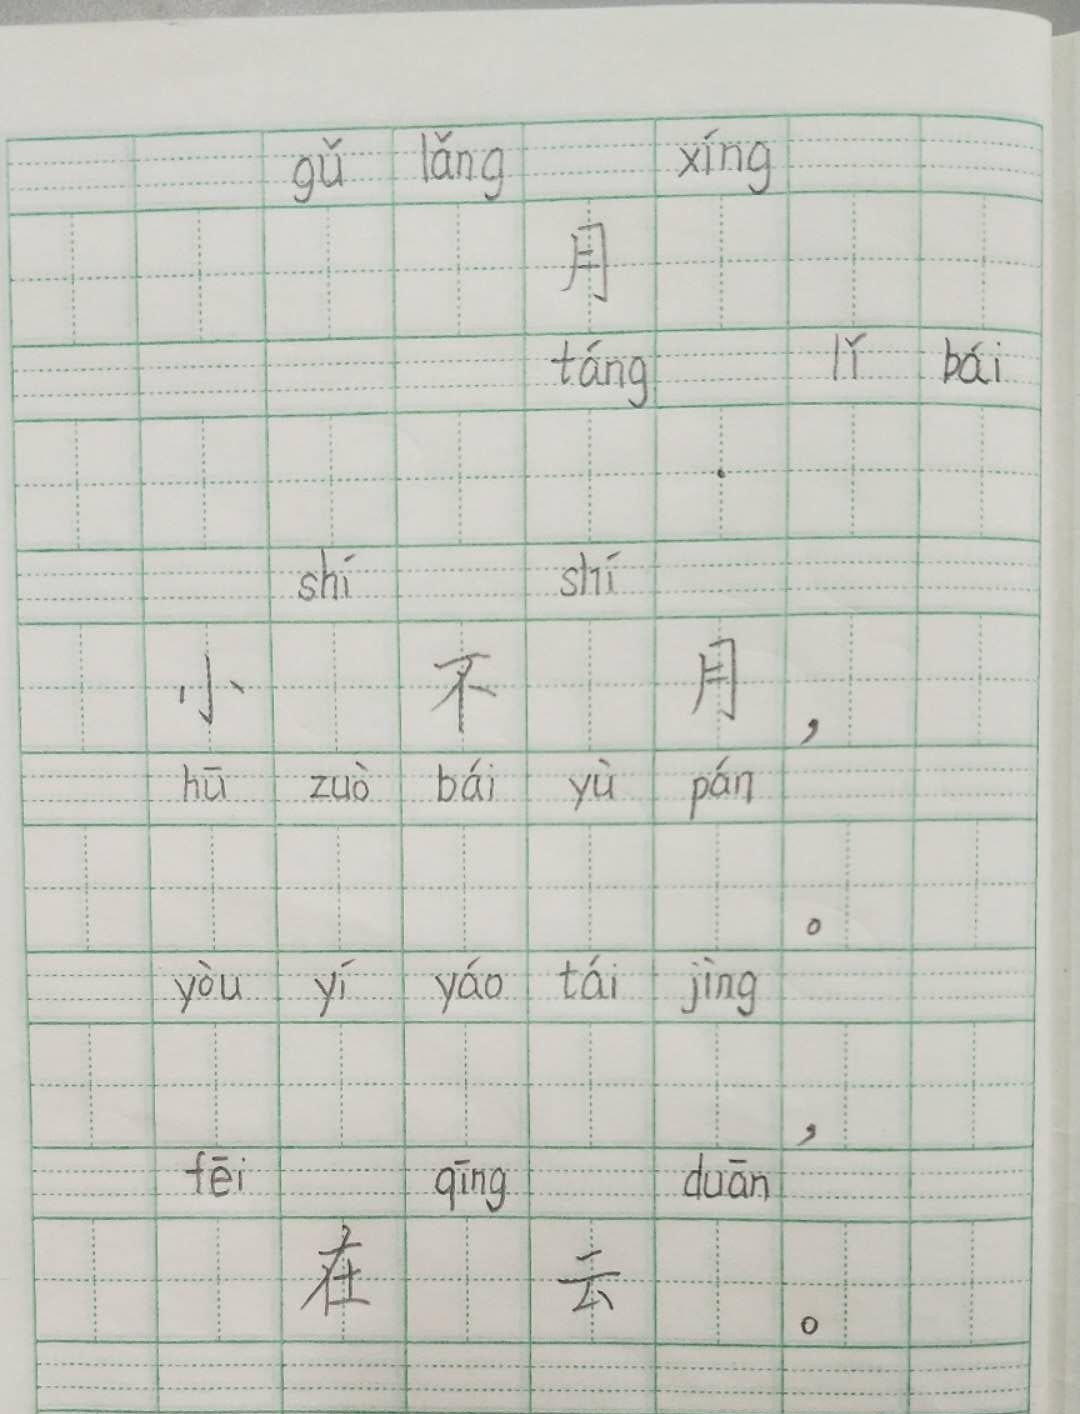 gǔ lǎng xíng
月
táng lǐ bái
·
shí shí
小 不 月，
hū zuò bái yù pán
。
yòu yí yáo tái jìng
，
fēi qīng duān
在 云 。